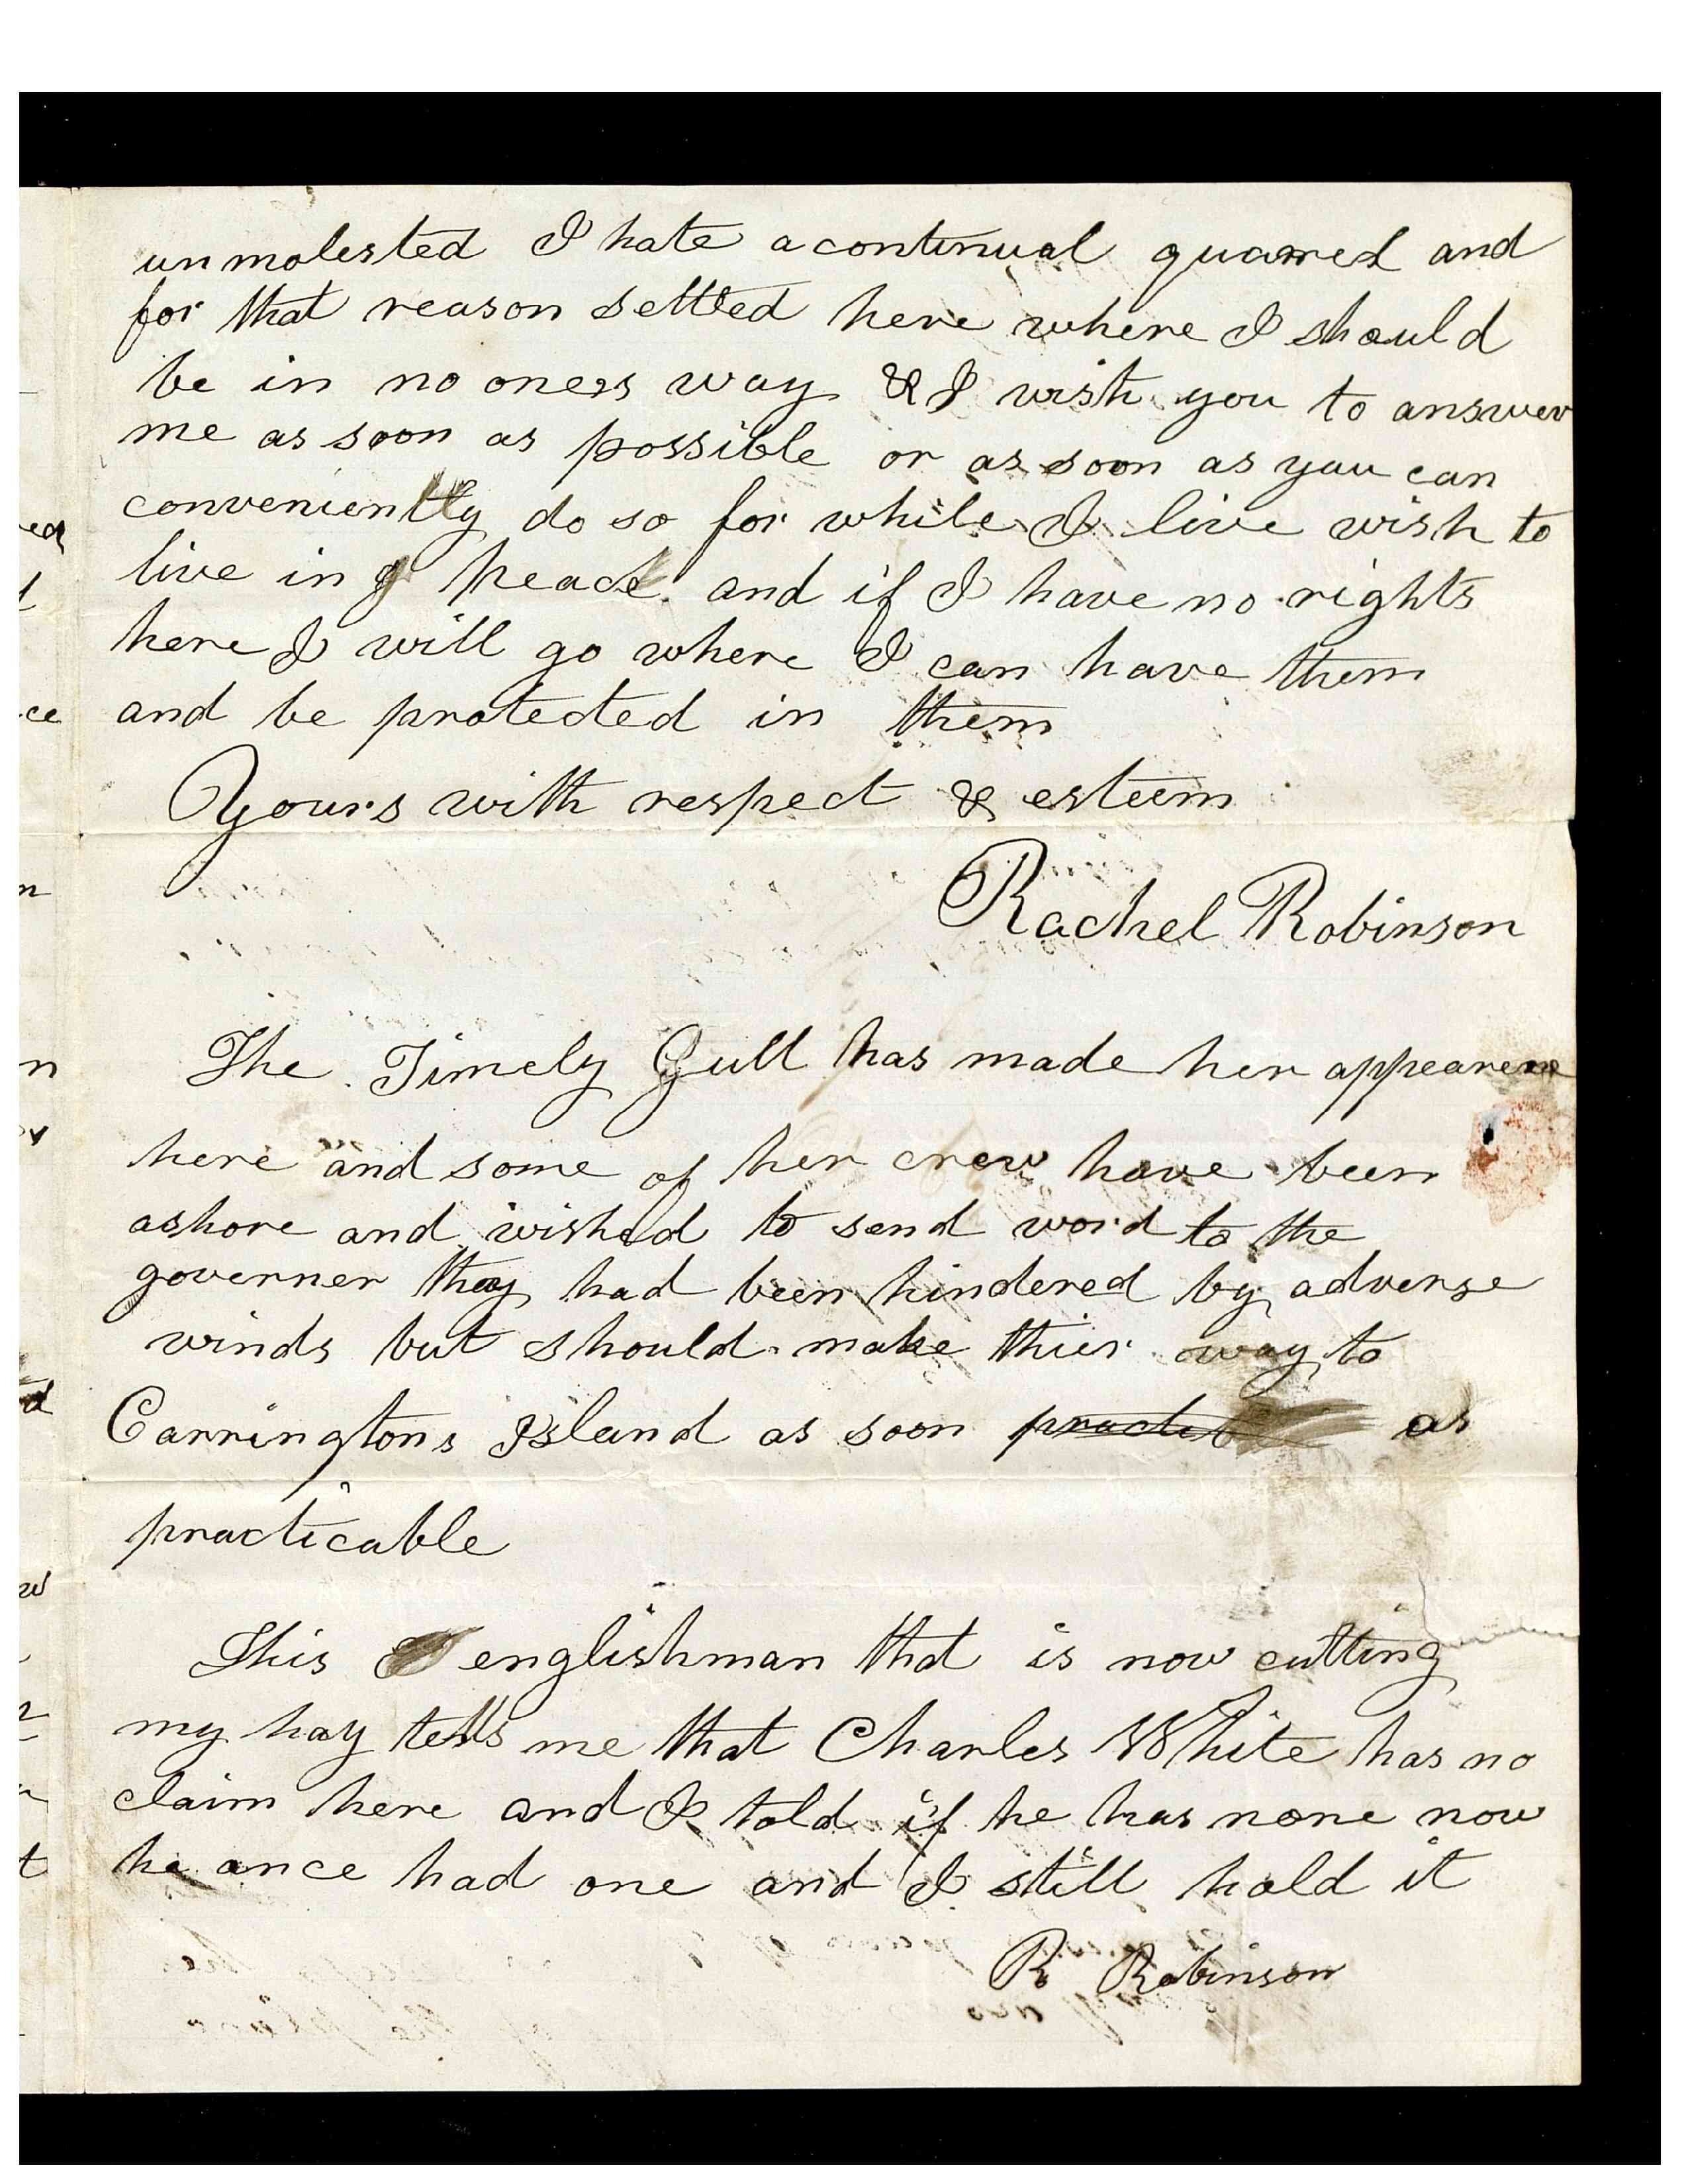 unmolested I hate a continual quarrel and
for that reason settled here where I should
be in no oness way & I wish you to answer
me as soon as possible or as soon as you can
conveniently do so for while I live wish to
live in peace and if I have no rights
here I will go where I can have them
and be protected in them
Yours with respect & esteem
Rachel Robinson
The Timely Gull has made her appearence
here and some of her crew have been
ashore and wished to send word to the
governer they had been hindered by adverse
winds but should make thier way to
Carringtons Island as soon practib as
practicable
This englishman that is now cutting
my hay tells me that Charles White has no
claim here and I told if he has none now
he once had one and I still hold it
R Robinson